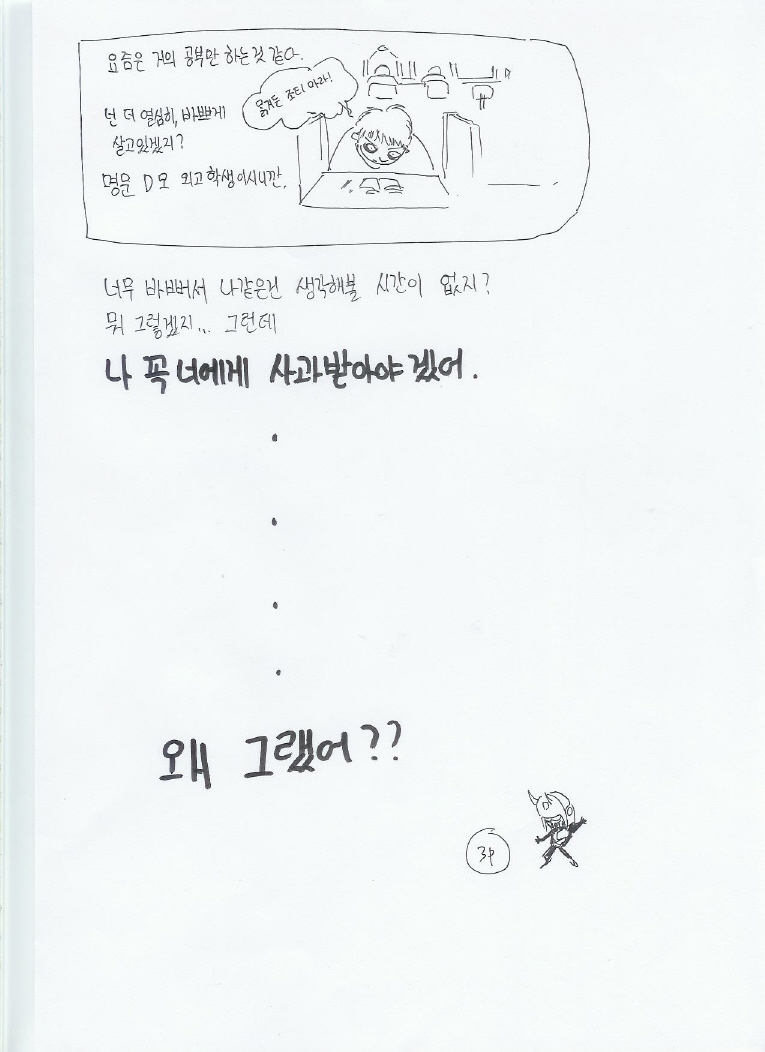 요즘은 거의 공부만 하는것 같아.
넌 더 열심히, 바쁘게
살고있겠지?
명문 D모 외고학생이시니깐.
너무 바빠서 나같은건 생각해볼 시간이 없지?
뭐 그렇겠지... 그런데
나 꼭 너에게 사과받아야겠어.
왜 그랬어??
3P